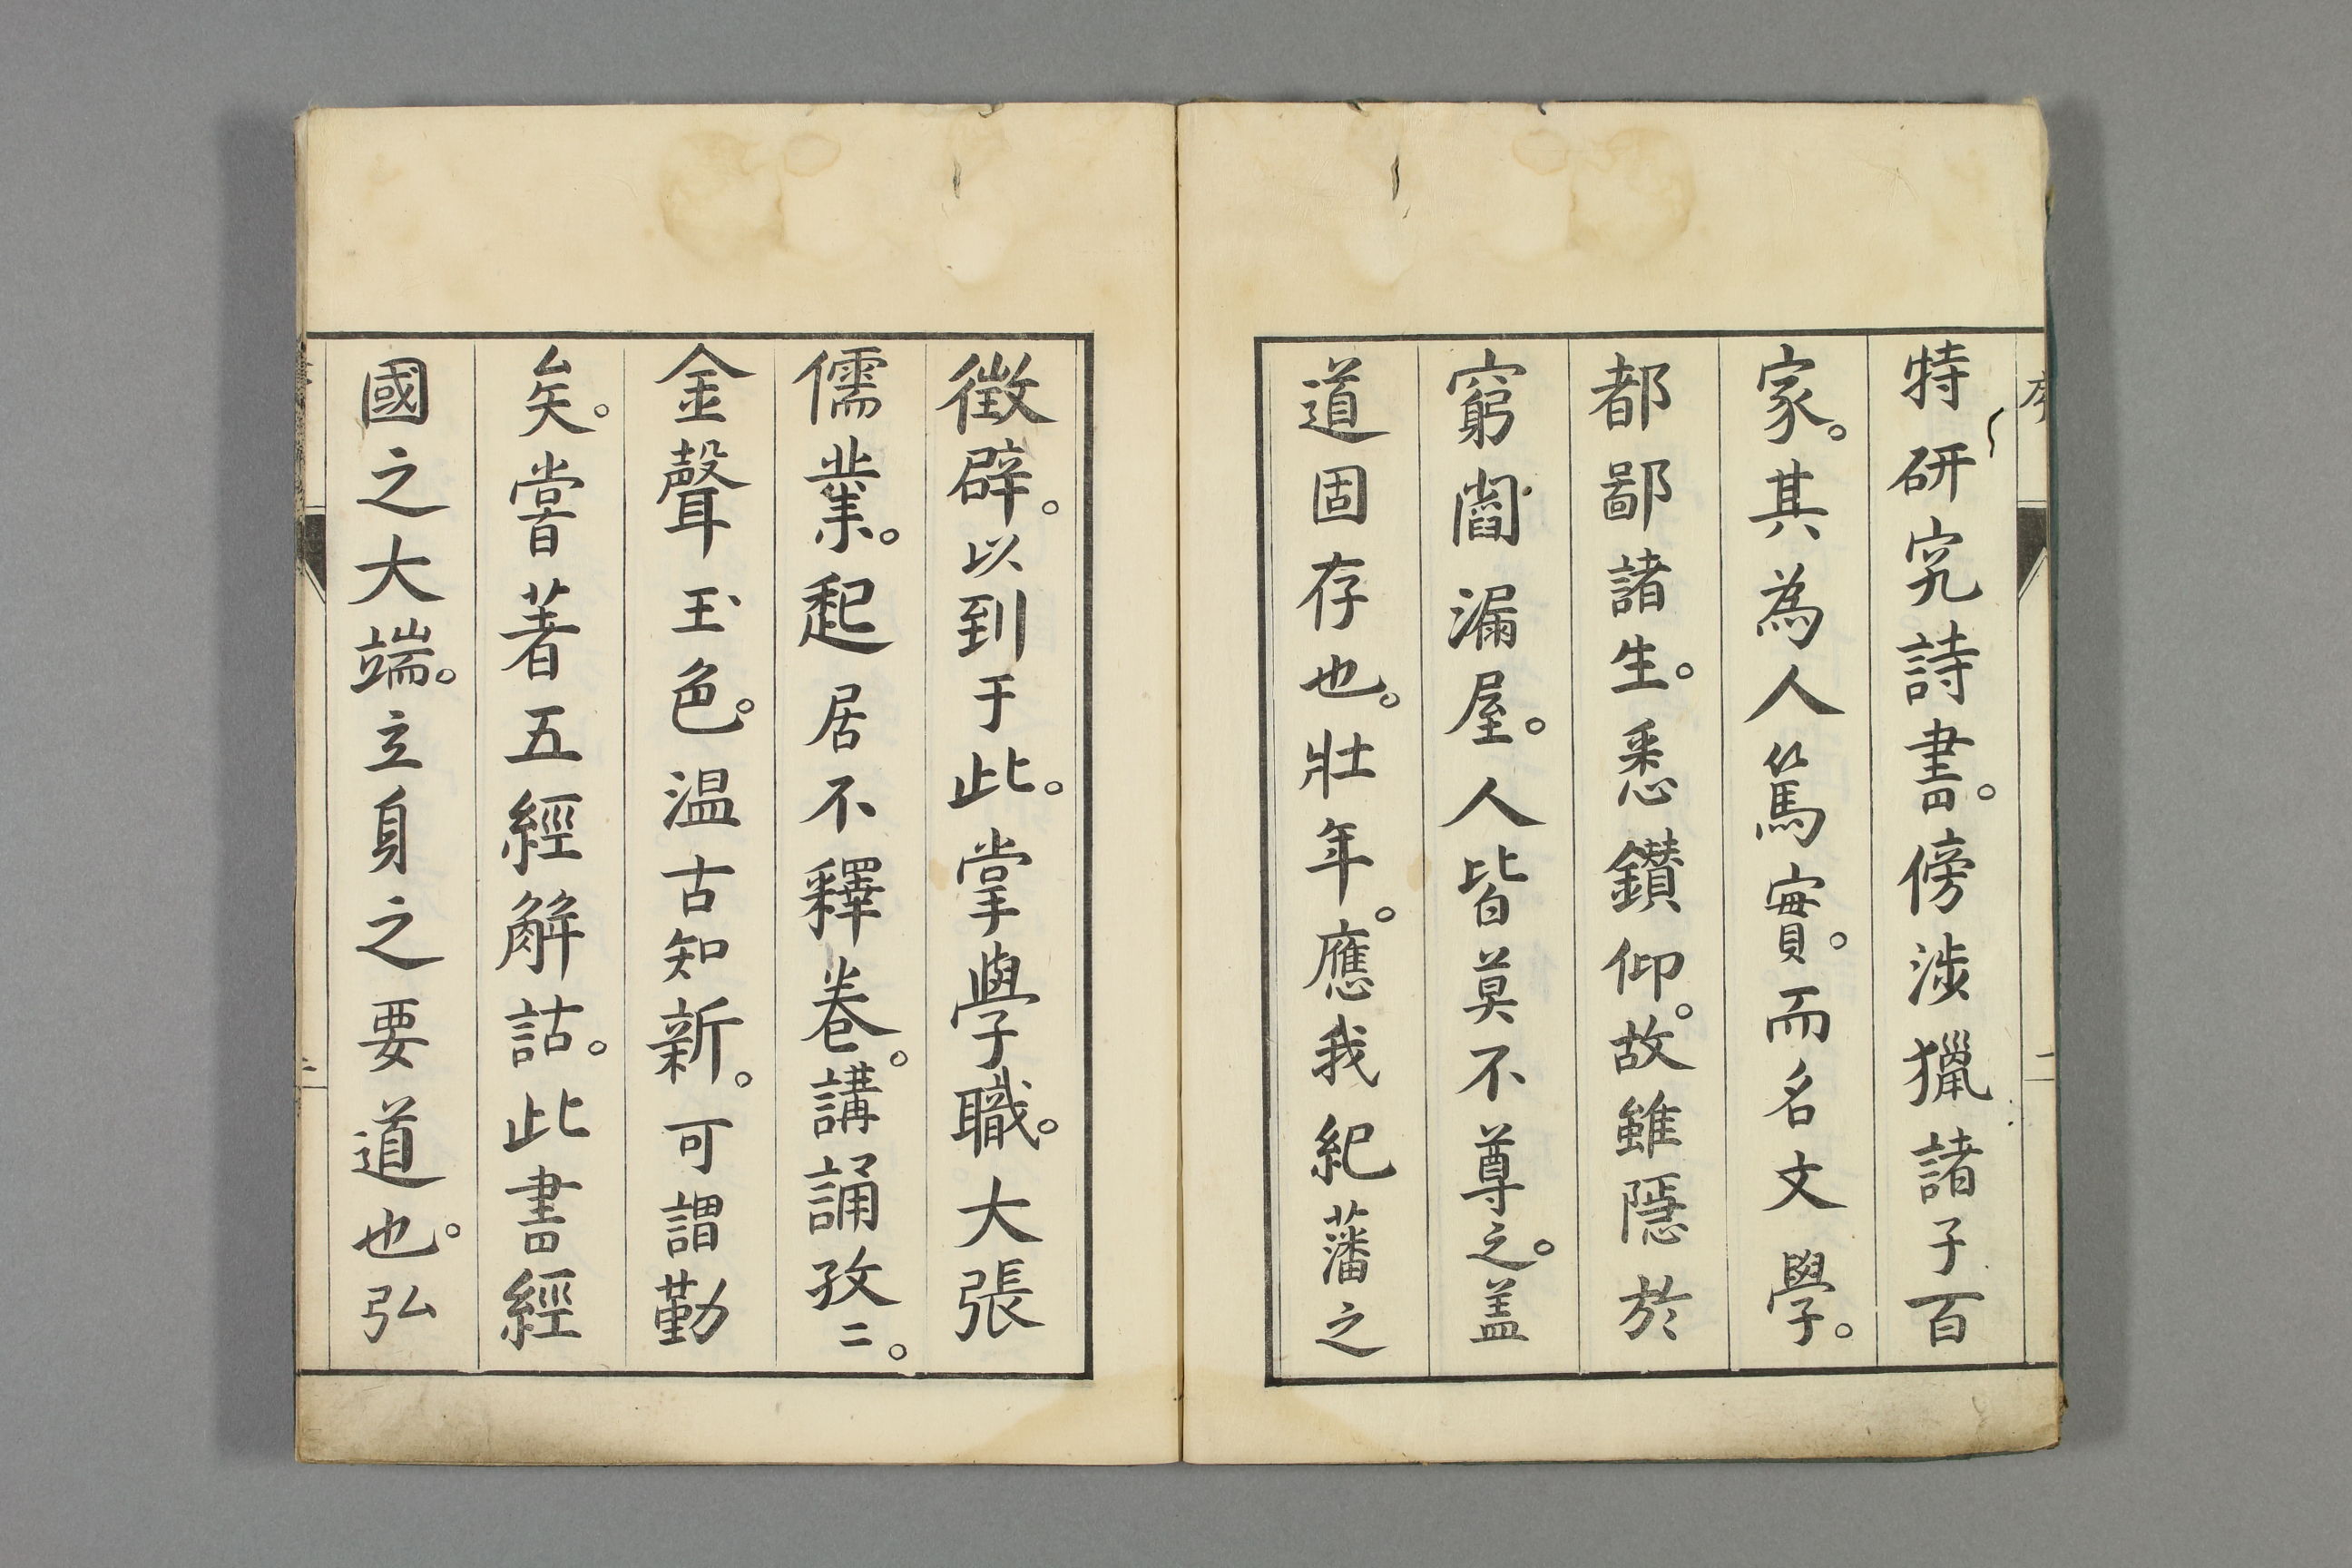 序
特研究詩書。傍涉獵諸子百
家。其為人篤實。而名文學。
都鄙諸生。悉鑚仰。故雖隱於
窮閻漏屋。人皆莫不尊之。盖
道固存也。壮年。應我紀藩之
二
徵辟。以到于此。掌學職。大張
儒業。起居不釋卷。講誦孜〻。
金聲玉色。温古知新。可謂勤
矣。嘗著五經解詁。此書經
國之大端。立身之要道也。弘